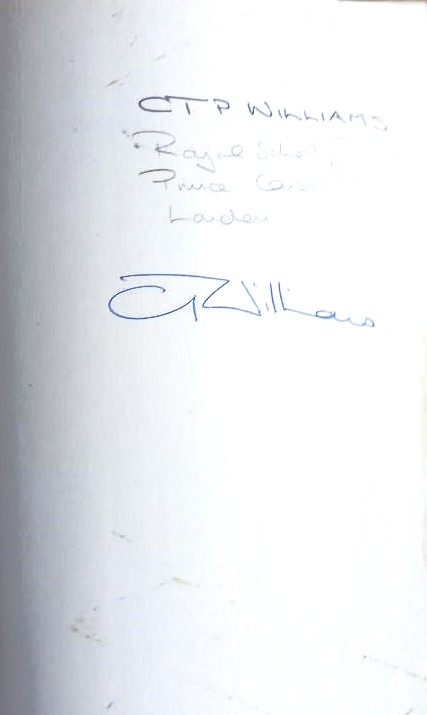 CTP WILLIAMS
Royal School
Prince
London
CTPWilliams